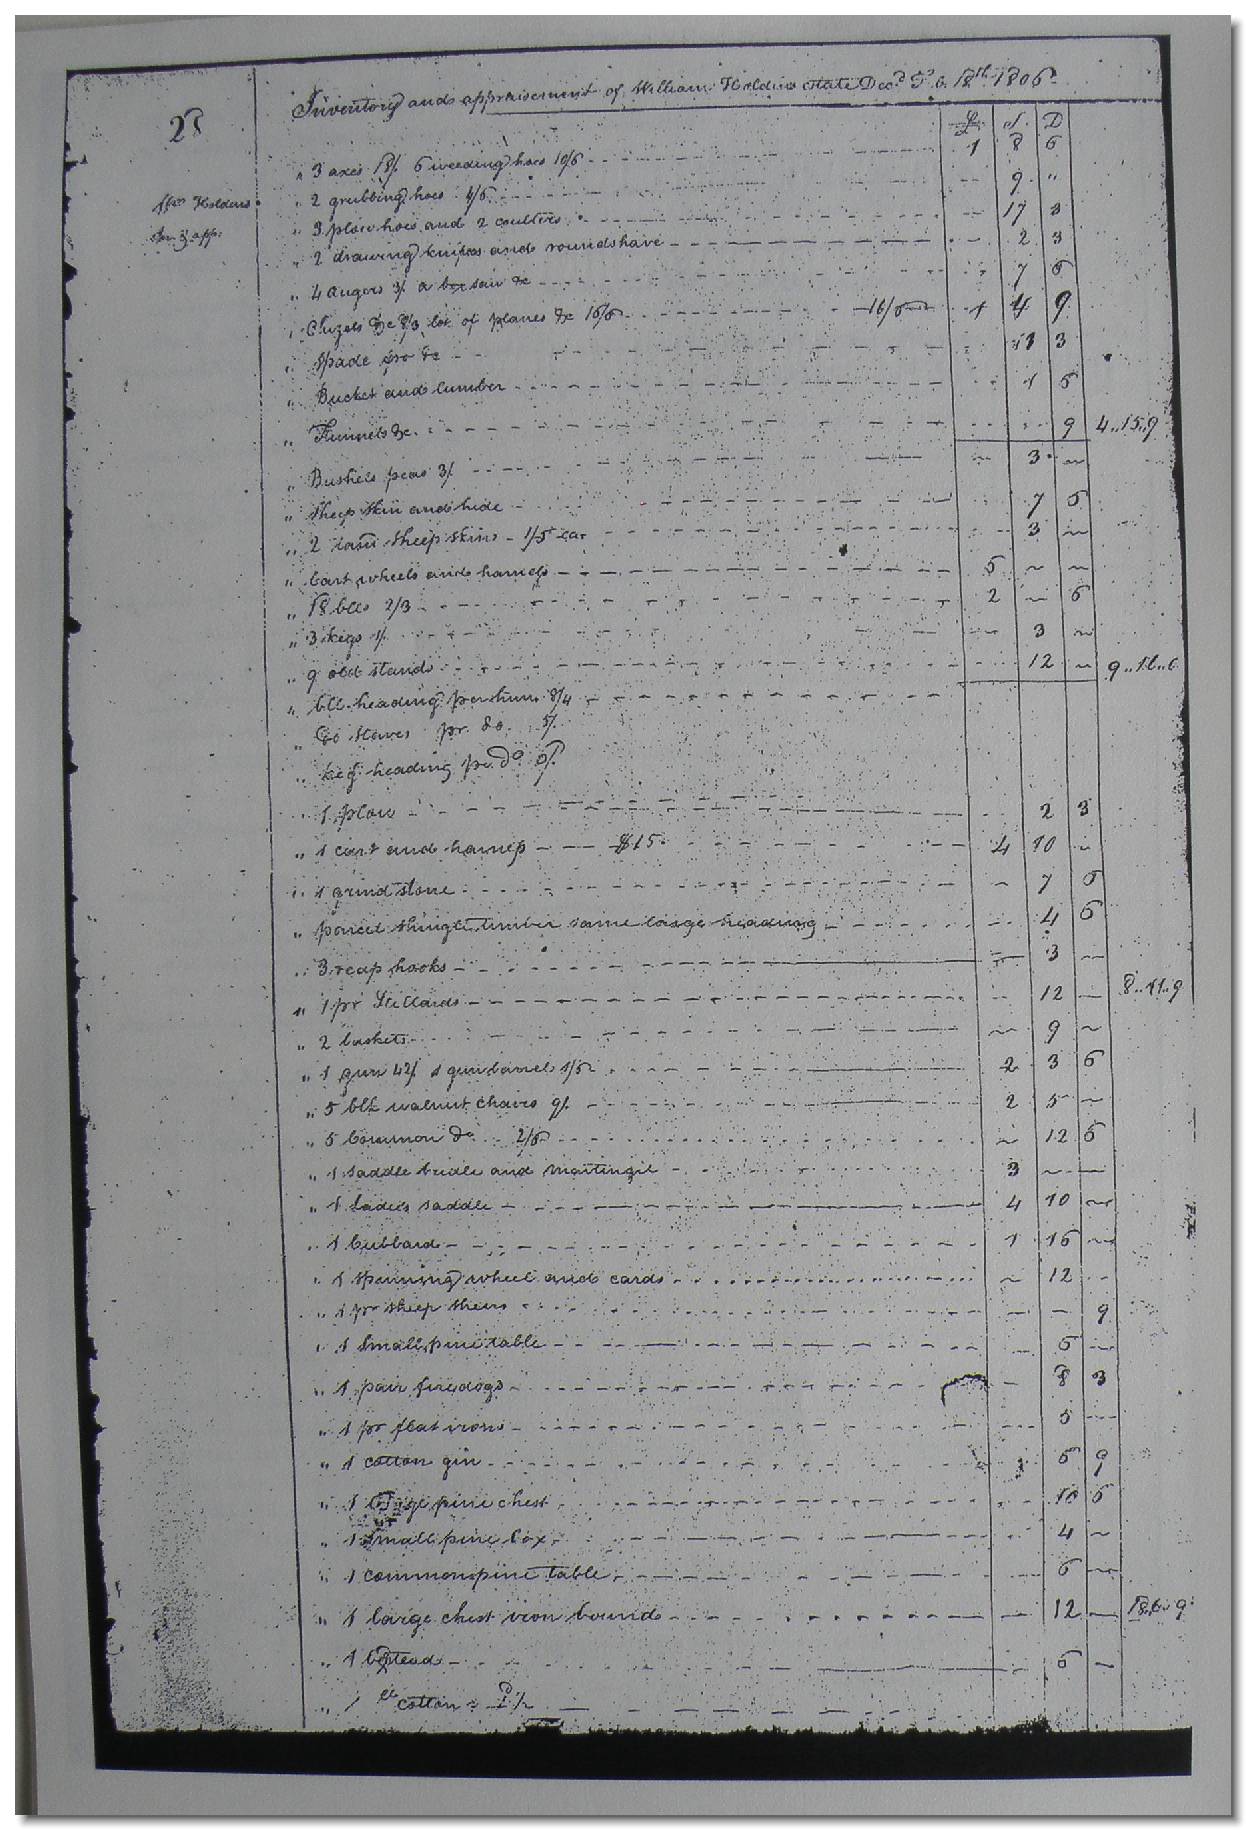 28
Inventory and appraisement of William Holdins estate Decd Feb. 18th 1806
£ s. D
Wm Holdins
Inv & app.
" 3 axes 18/. 6 weeding hoes 10/6 1 8 6
" 2 grubbing hoes 4/6 9 "
" 3 plow hoes and 2 coulters 17 3
" 2 drawing knifes and roundshave 2 3
" 4 augers 3/. a box saw &c 7 6
" Chizels &c 8/3 lot of planes &c 16/6 16/6 1 4 9
" Spade &c 11 3
" Bucket and lumber 1 6
" Funnels &c. 9 4..15..9
" Bushels peas 3/. 3
" Sheep skin and hide 7 6
" 2 sheep skins - 1/6 ea. 3
" Cart wheels and hames 5
" 18 bbls 2/3 2 6
" 3 kegs 1/. 3
" 9 old stands 12 9..11..6
" bbl. heading per thun. 8/4
" Do staves pr. do. 5/.
" keg heading pr. do 6/.
" 1 plow 2 3
" 1 cart and harness $15. 4 10
" 1 grind stone 7 6
" parcel shingle timber some large heading 4 6
" 3 reap hooks 3
" 1 pr Stillards 12 8..11..9
" 2 baskets 9
" 1 gun 42/. 1 gun barrel 1/6 2 3 6
" 5 blk walnut chairs 9/. 2 5
" 5 Common do 2/6 12 6
" 1 saddle bridle and martingil 3
" 1 Ladies saddle 4 10
" 1 Cubbard 1 16
" 1 spinning wheel and cards 12
" 1 pr sheep shears 9
" 1 small pine table 6
" 1 pair firedogs 8 3
" 1 pr flat irons 5
" 1 cotton gin 6 9
" 1 large pine chest 10 6
" 1 small pine box. 4
" 1 common pine table 6
" 1 large chest iron bound 12 18..6..9
" 1 bestead 6
" 1 cotton